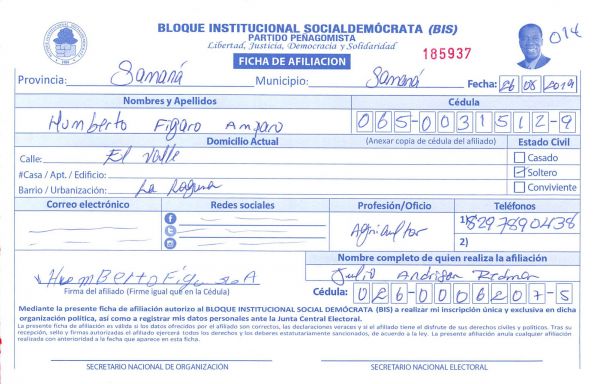 BLOQUE INSTITUCIONAL SOCIALDEMÓCRATA (BIS)
PARTIDO PEÑAGOMISTA
Libertad, Justicia, Democracia y Solidaridad
FICHA DE AFILIACION
185937
014
Provincia: Samaná Municipio: Samaná Fecha: 26 08 2019
Nombres y Apellidos Cédula
Humberto Figaro Amparo 065-0031512-9
Domicilio Actual (Anexar copia de cédula del afiliado) Estado Civil
Calle: El Valle Casado
#Casa / Apt. / Edificio: Soltero
Barrio / Urbanización: La Laguna Conviviente
Correo electrónico Redes sociales Profesión/Oficio Teléfonos
Agricultor 1) 8297890438
2)
Nombre completo de quien realiza la afiliación
Humberto Figaro A Julio Andrison
Firma del afiliado (Firme igual que en la Cédula) Cédula: 026-0006207-5
Mediante la presente ficha de afiliación autorizo al BLOQUE INSTITUCIONAL SOCIAL DEMÓCRATA (BIS) a realizar mi inscripción única y exclusiva en dicha
organización política, así como a registrar mis datos personales ante la Junta Central Electoral.
La presente ficha de afiliación es válida si los datos ofrecidos por el afiliado son correctos, las declaraciones veraces y si el afiliado tiene el disfrute de sus derechos civiles y políticos. Tras su
recepción, sello y firmas autorizadas el afiliado ejercerá todos los derechos y los deberes estatutariamente sancionados, de acuerdo a la ley. La presente afiliación anula cualquier afiliación
realizada con anterioridad a la fecha que aparece en esta ficha.
SECRETARIO NACIONAL DE ORGANIZACIÓN SECRETARIO NACIONAL ELECTORAL